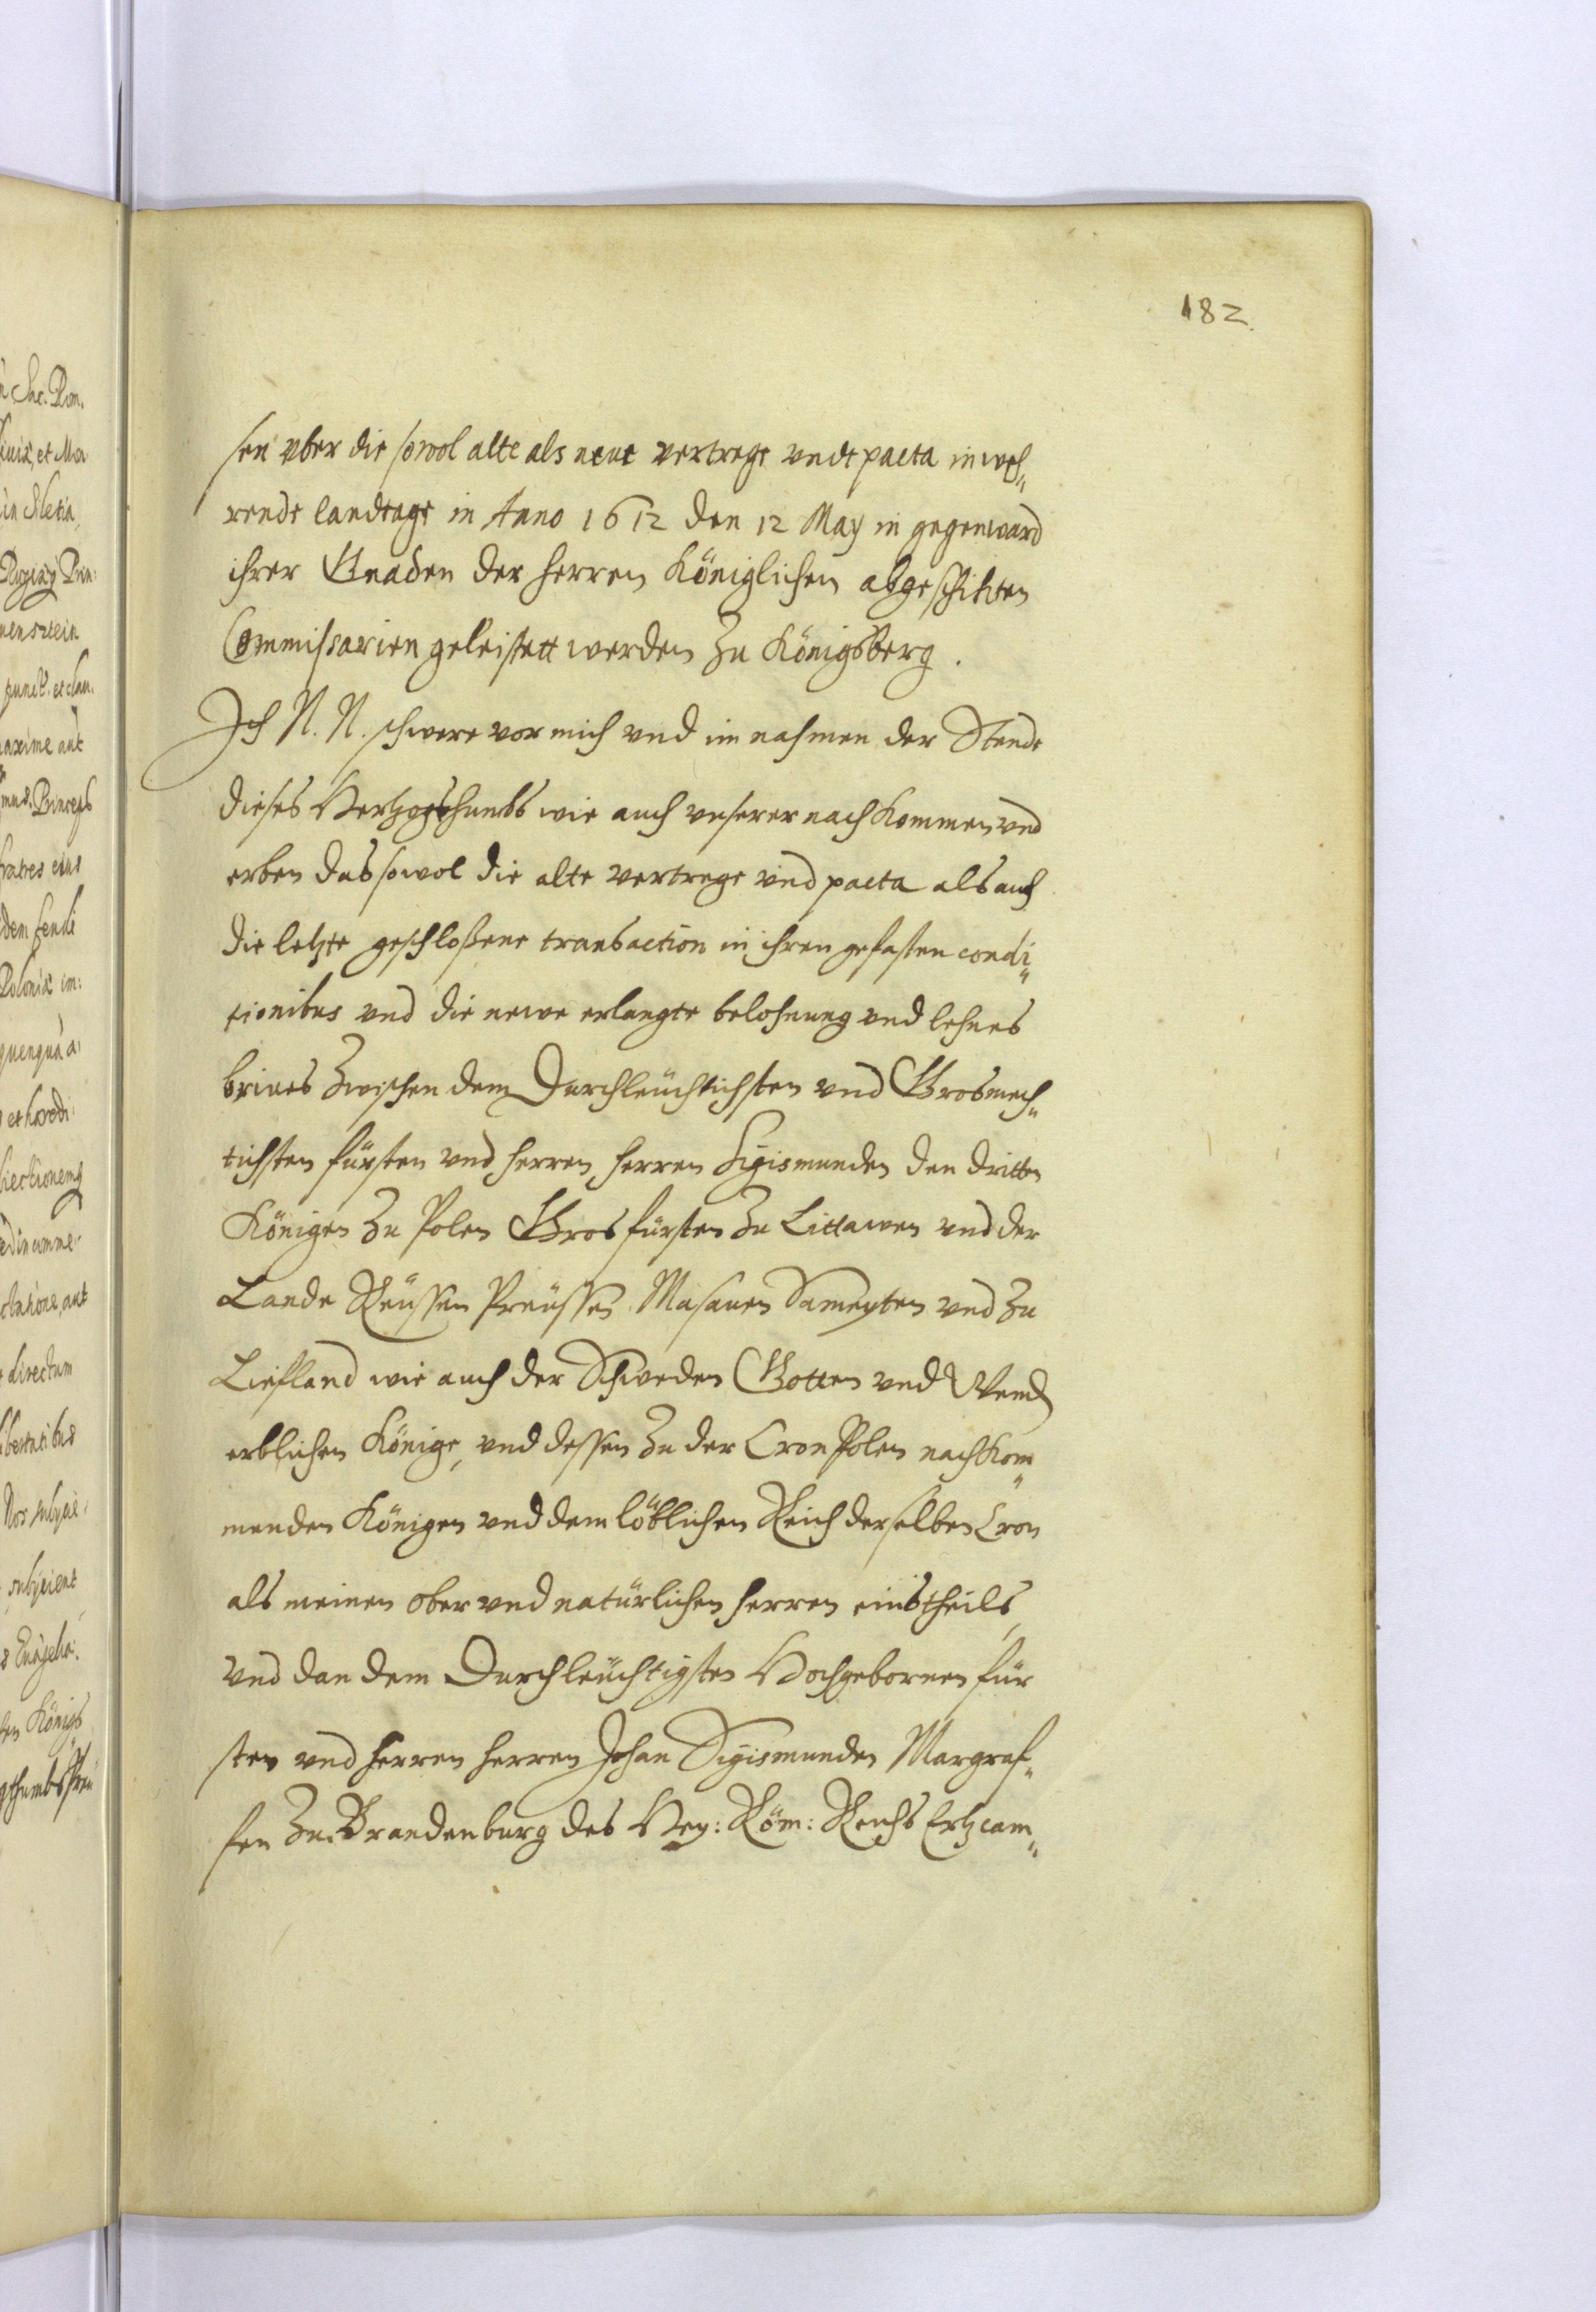 182.
sen vber die sowol alte als neue vertrege vndt pacta in weh„
rende landtage in Anno 1612 den 12 May in gegenward
ihrer Gnaden der herren Königlichen abgeschikten
Commissarien geleistett werden zu Königsberg.
Ich N. N. schwere vor mich vnd im nahmen der Stende
dieses Hertzogthumbs wie auch vnserer nachkommen vnd
erben das sowol die alte vertrege vnd pacta als auch
die letzte geschloßene transaction in ihren gefasten condi„
tionibus vnd die newe erlangte belohnung vnd lehnes
brieues zwischen dem Durchleuchtichsten vnd Grosmech„
tichsten fürsten vnd herren herren Sigismunden den dritten
Königen zu Polen Grosfürsten zu Littawen vnd der
Lande Reussen Preussen Masauen Sameyten vnd zu
Liefland wie auch der Schweden Gotten vnd Wend
erblichen Könige, vnd dessen zu der Cron Polen nachkom„
menden Königen vnd dem löblichen Reich derselben Cron
als meinen ober vnd natürlichen herren einstheils,
vnd dan dem Durchleuchtigsten Hochgebornen für
sten vnd herren herren Johan Sigismunden Margraf„
fen zu Brandenburg des Hey: Röm: Reichs Ertzcam„